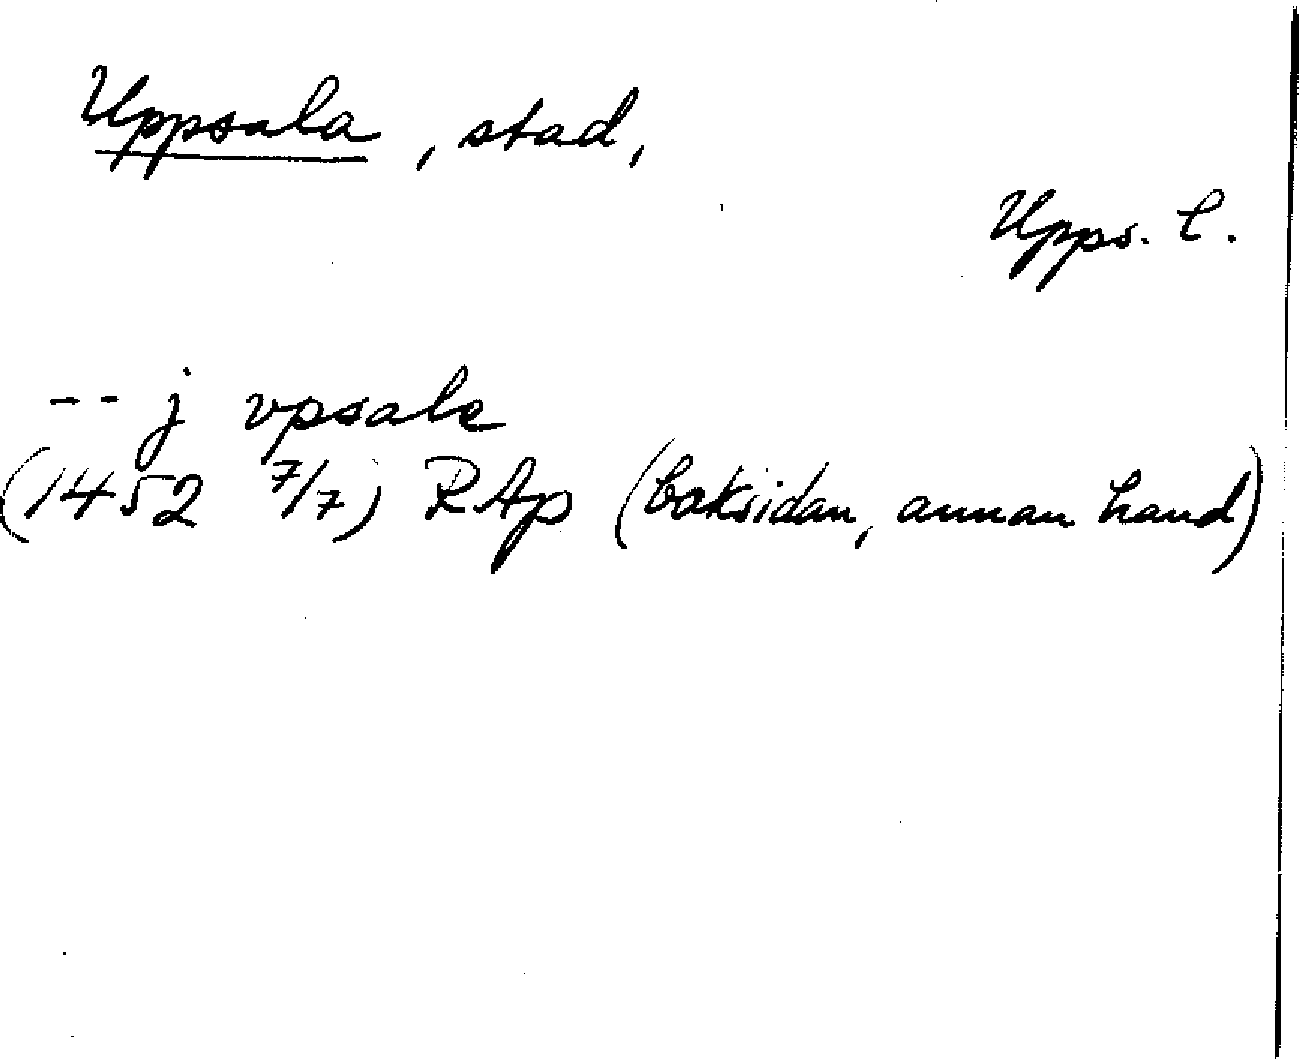 Uppsala, stad,
Upps. l.
-- j vpsale
(1452 7/7) RAp (baksidan, annan hand)